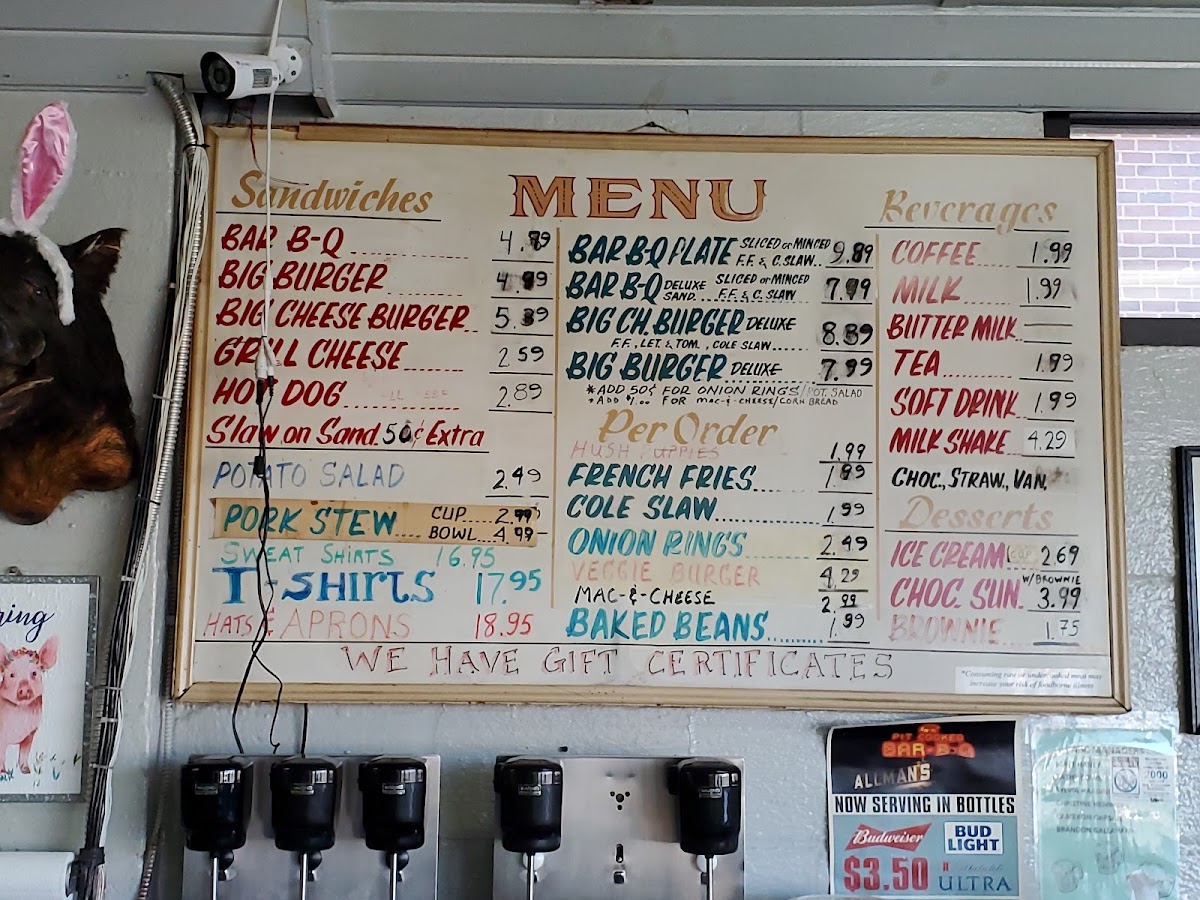 MENU
Sandwiches
BAR B-Q 4.89
BIG BURGER 4.99
BIG CHEESE BURGER 5.39
GRILL CHEESE 2.59
HOT DOG 2.89
Slaw on Sand. 50¢ Extra
POTATO SALAD 2.49
PORK STEW CUP 2.99
BOWL 4.99
SWEAT SHIRTS 16.95
T-SHIRTS 17.95
HATS & APRONS 18.95
BAR B-Q PLATE SLICED or MINCED 9.89
F.F. & C. SLAW
BAR B-Q DELUXE SAND. SLICED or MINCED 7.99
F.F. & C. SLAW
BIG CH. BURGER DELUXE 8.39
F.F., LET. & TOM., COLE SLAW
BIG BURGER DELUXE 7.99
*ADD 50¢ FOR ONION RINGS/POT. SALAD
*ADD $1.00 FOR MAC-&-CHEESE/CORN BREAD
Per Order
HUSH PUPPIES 1.99
FRENCH FRIES 1.99
COLE SLAW 1.99
ONION RINGS 2.49
VEGGIE BURGER 4.29
MAC-&-CHEESE 2.99
BAKED BEANS 1.99
Beverages
COFFEE 1.99
MILK 1.99
BUTTER MILK
TEA 1.99
SOFT DRINK 1.99
MILK SHAKE 4.29
CHOC., STRAW., VAN.
Desserts
ICE CREAM 2.69
CHOC. SUN. W/BROWNIE 3.99
BROWNIE 1.75
WE HAVE GIFT CERTIFICATES
*Consuming raw or undercooked meat may
increase your risk of foodborne illness
PIT COOKED
BAR-B-Q
ALLMAN'S
NOW SERVING IN BOTTLES
Budweiser
BUD
LIGHT
$3.50
ULTRA